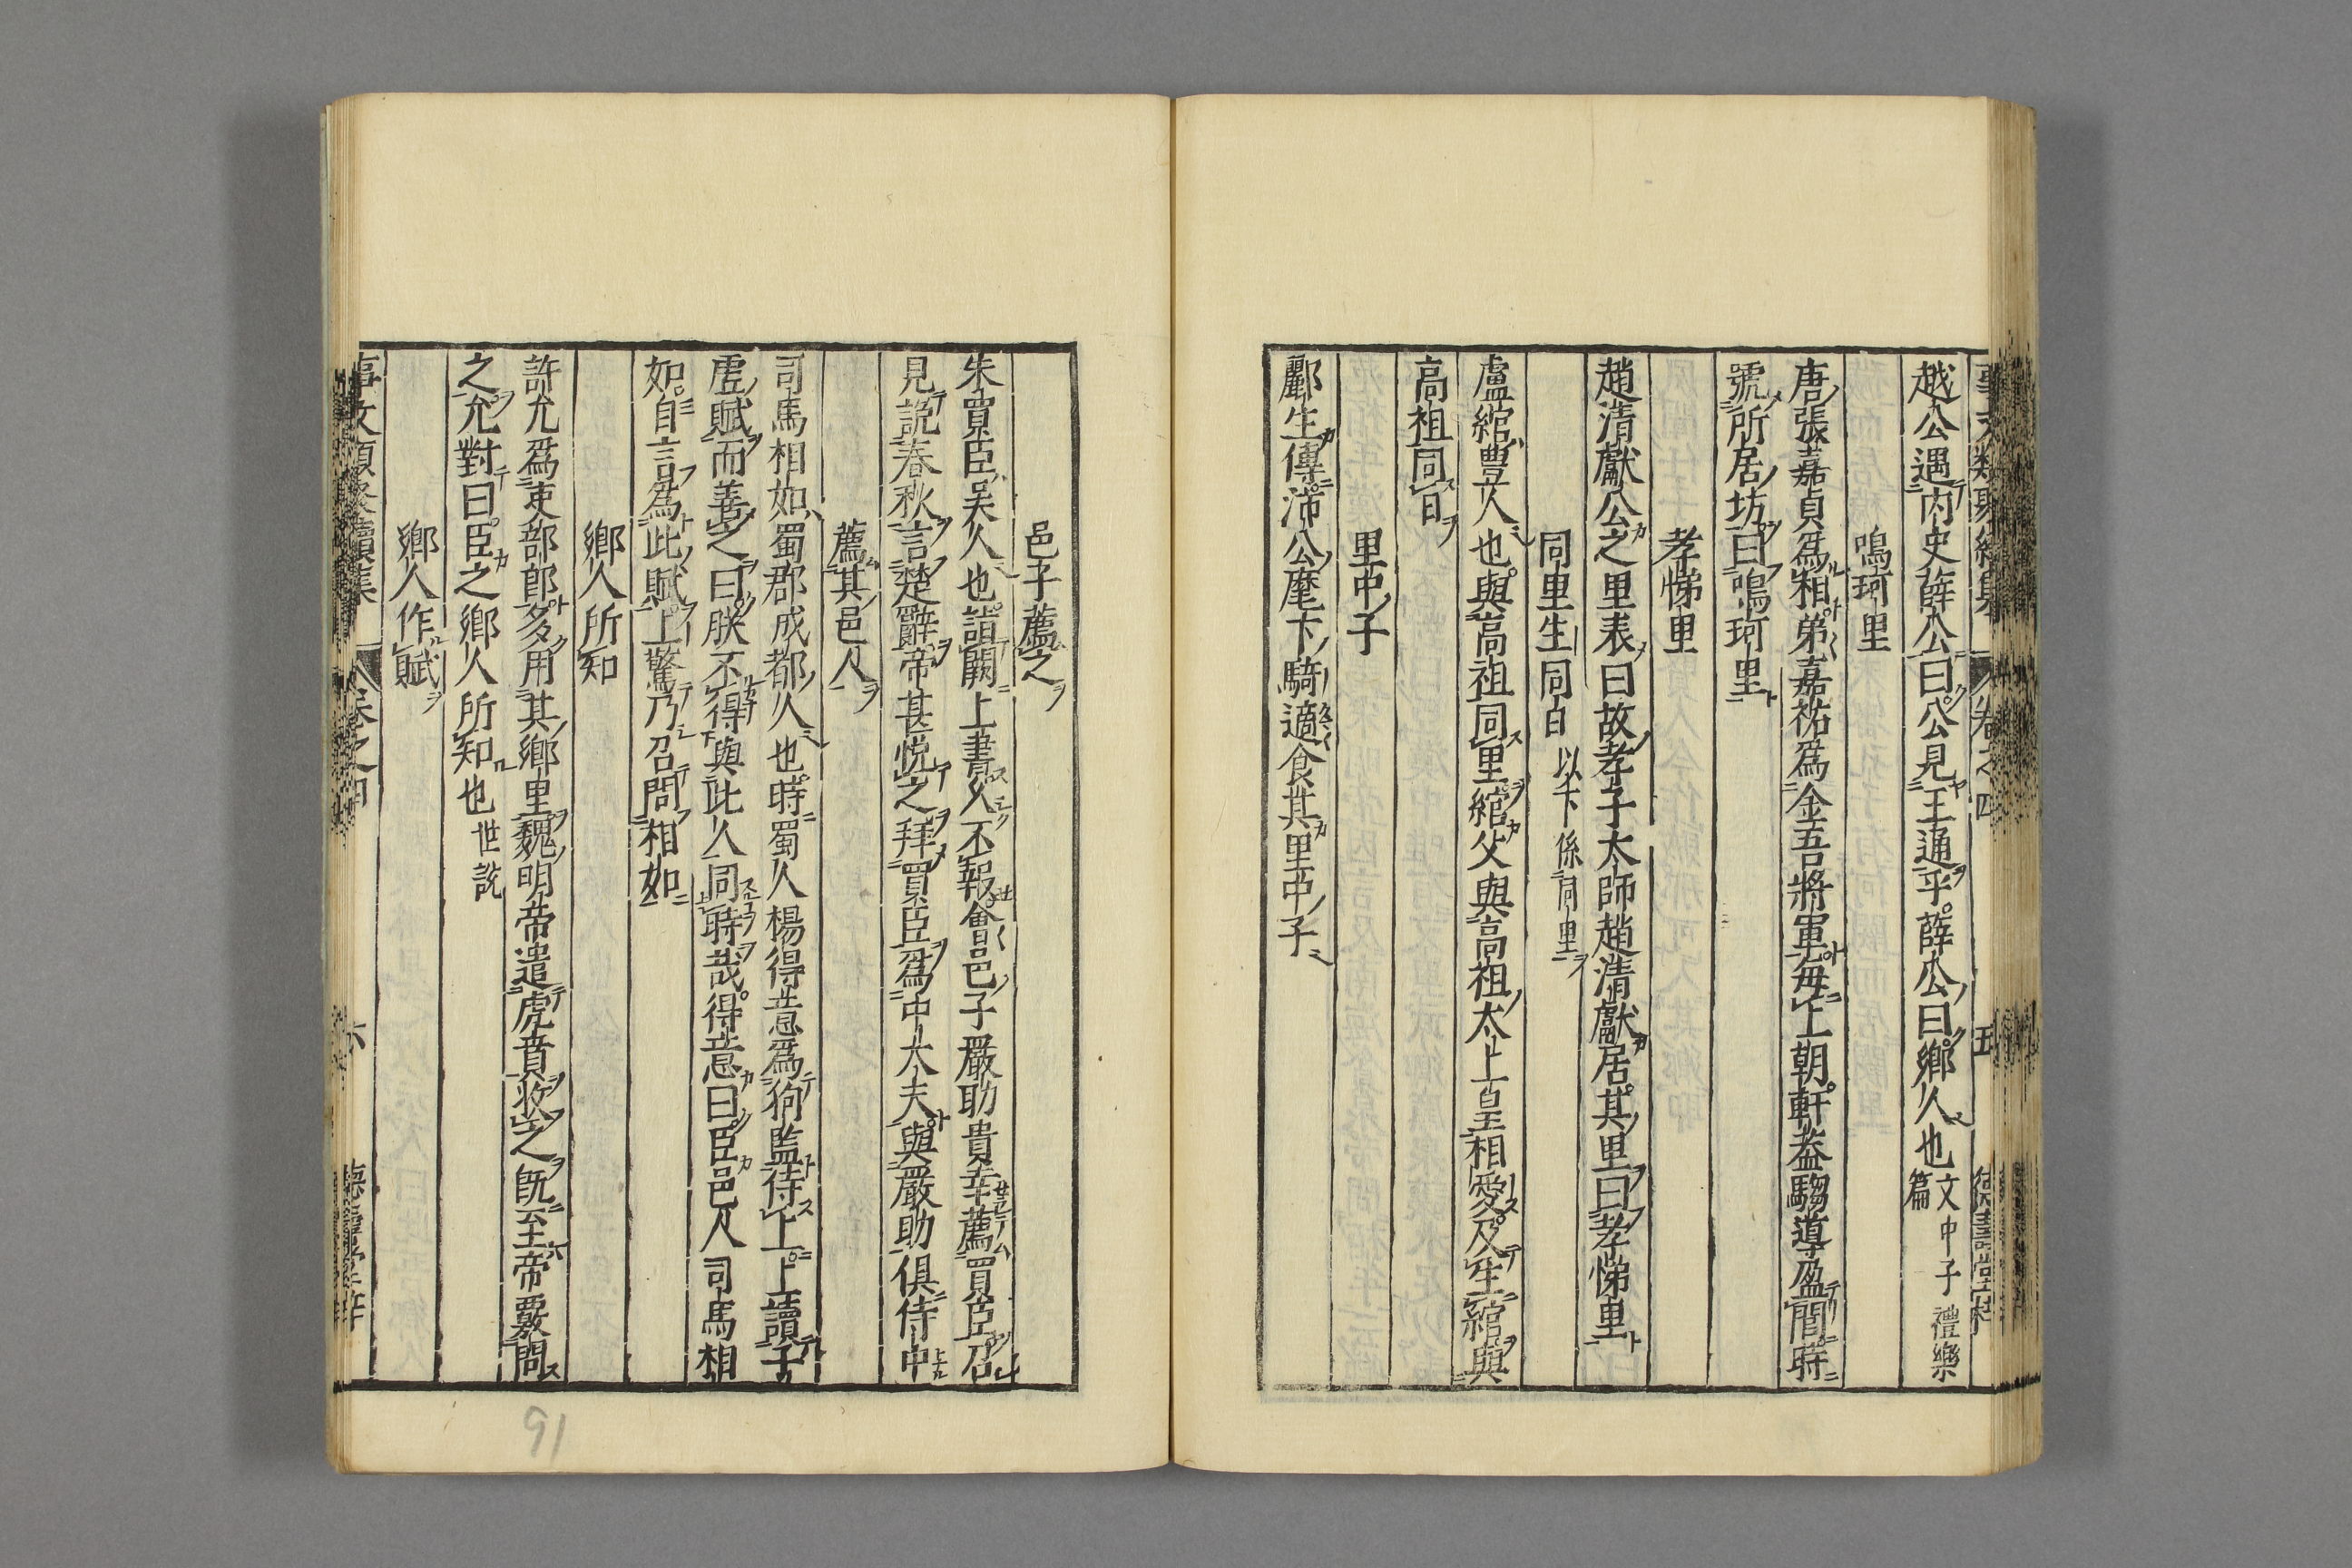 越公遇内史薛公曰公見王通乎薛公曰鄉人也文中子禮樂篇
鳴珂里
唐張嘉貞爲相弟嘉祐爲金吾將軍每上朝軒蓋騶導盈閭時
號所居坊曰鳴珂里
孝悌里
趙清獻公之里表曰故孝子太師趙清獻居其里曰孝悌里
同里生同日 以下係同里
盧綰豊人也與高祖同里綰父與高祖太上皇相愛及生綰與
高祖同日
里中子
酈生傳沛公麾下騎適食其里中子
邑子薦之
朱買臣吳人也詣闕上書久不報會邑子嚴助貴幸薦買臣召
見說春秋言楚辭帝甚悅之拜買臣爲中大夫與嚴助俱侍中
薦其邑人
司馬相如蜀郡成都人也時蜀人楊得意爲狗監侍上上讀子
虛賦而善之曰朕不得與此人同時哉得意曰臣邑人司馬相
如自言爲此賦上驚乃召問相如
鄉人所知
許允爲吏部郎多用其鄉里魏明帝遣虎賁收之既至帝覈問
之允對曰臣之鄉人所知也世說
鄉人作賦
事文類聚續集 卷之四 六